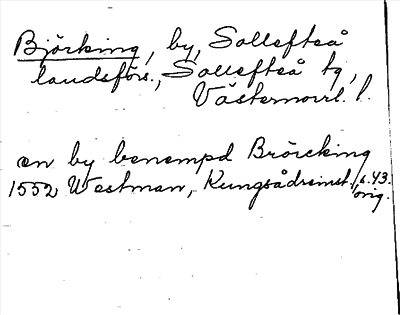 Björking, by, Sollefteå
landsförs., Sollefteå tg,
Västernorrl. l.
en by benempd Brörcking
1552 Westman, Kungsådreinst., s. 43.
orig.